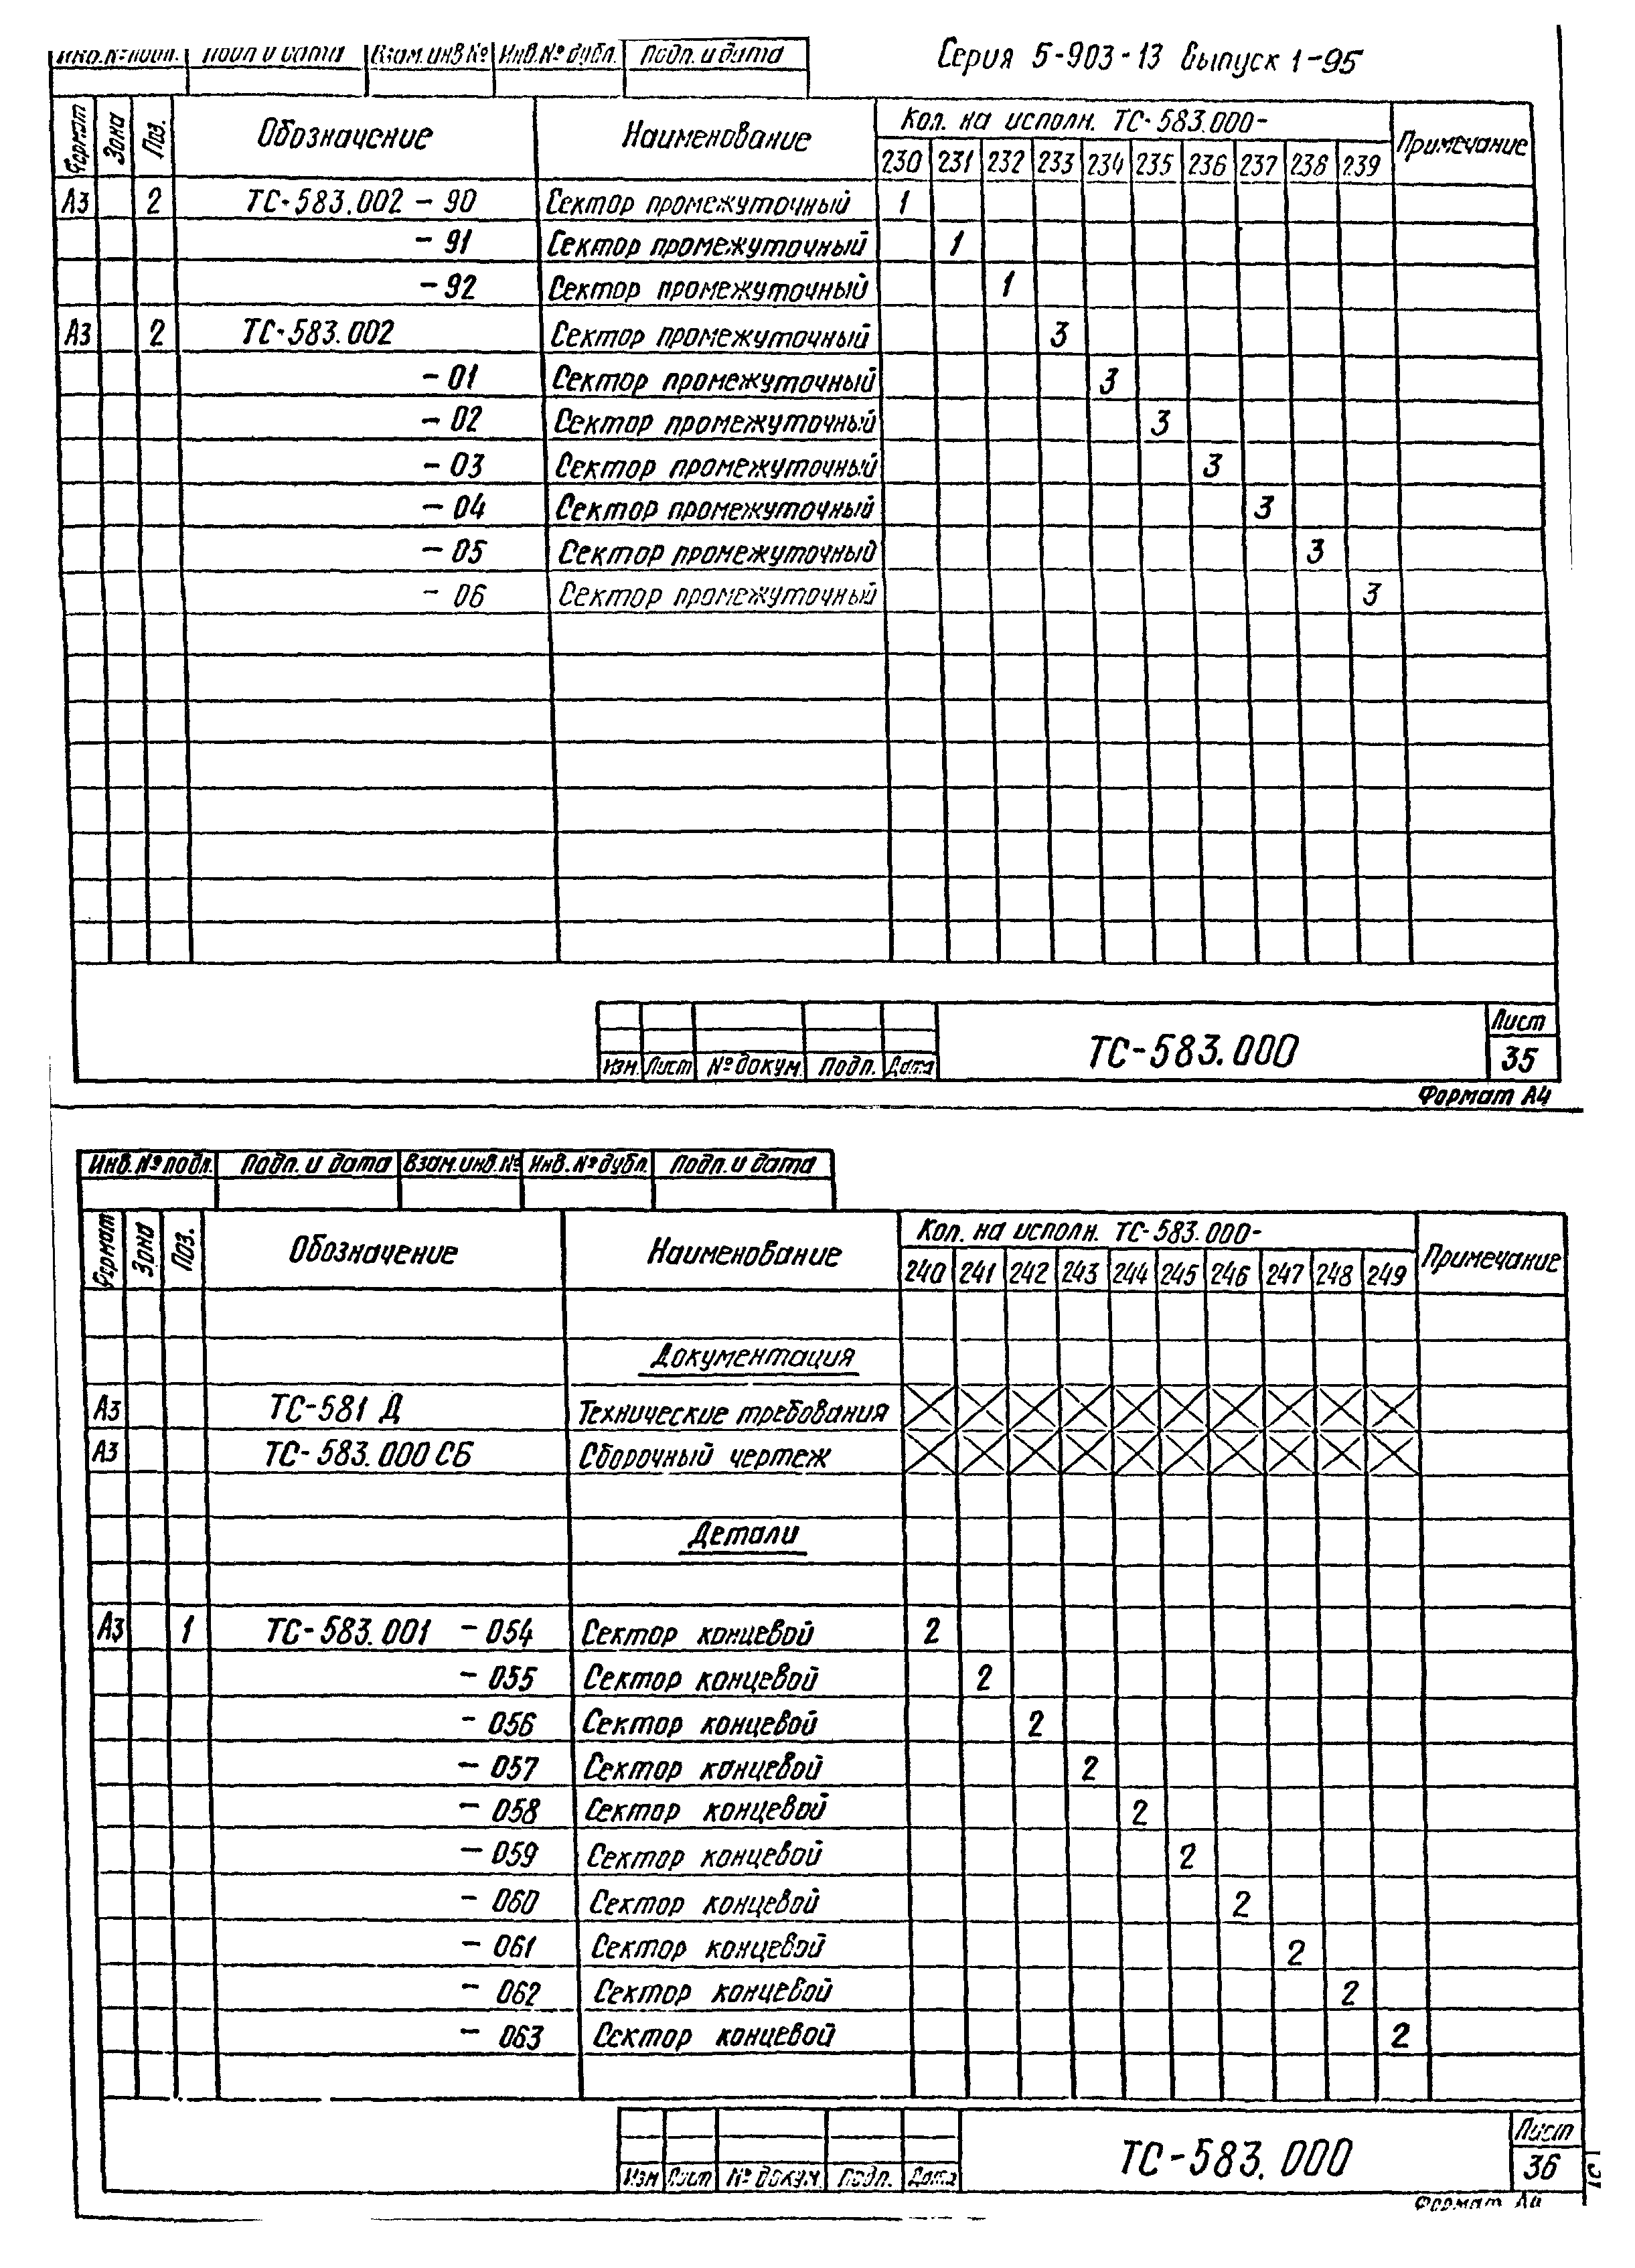 Серия 5-903-13 Выпуск 1-95
Инв.№подл. Подп и дата Взам.инв№ Инв.№дубл. Подп. и дата
Формат Зона Поз. Обозначение Наименование Кол. на исполн. ТС-583.000- Примечание
230 231 232 233 234 235 236 237 238 239
А3 2 ТС-583.002 - 90 Сектор промежуточный 1
- 91 Сектор промежуточный 1
- 92 Сектор промежуточный 1
А3 2 ТС-583.002 Сектор промежуточный 3
- 01 Сектор промежуточный 3
- 02 Сектор промежуточный 3
- 03 Сектор промежуточный 3
- 04 Сектор промежуточный 3
- 05 Сектор промежуточный 3
- 06 Сектор промежуточный 3
Изм Лист № докум. Подп. Дата ТС-583.000 Лист 35
Формат А4
Инв.№подл. Подп. и дата Взам.инв.№ Инв.№дубл. Подп. и дата
Формат Зона Поз. Обозначение Наименование Кол. на исполн. ТС-583.000- Примечание
240 241 242 243 244 245 246 247 248 249
Документация
А3 ТС-581 Д Технические требования
А3 ТС-583.000 СБ Сборочный чертеж
Детали
А3 1 ТС-583.001 - 054 Сектор концевой 2
- 055 Сектор концевой 2
- 056 Сектор концевой 2
- 057 Сектор концевой 2
- 058 Сектор концевой 2
- 059 Сектор концевой 2
- 060 Сектор концевой 2
- 061 Сектор концевой 2
- 062 Сектор концевой 2
- 063 Сектор концевой 2
Изм Лист № докум. Подп. Дата ТС-583.000 Лист 36
Формат А4